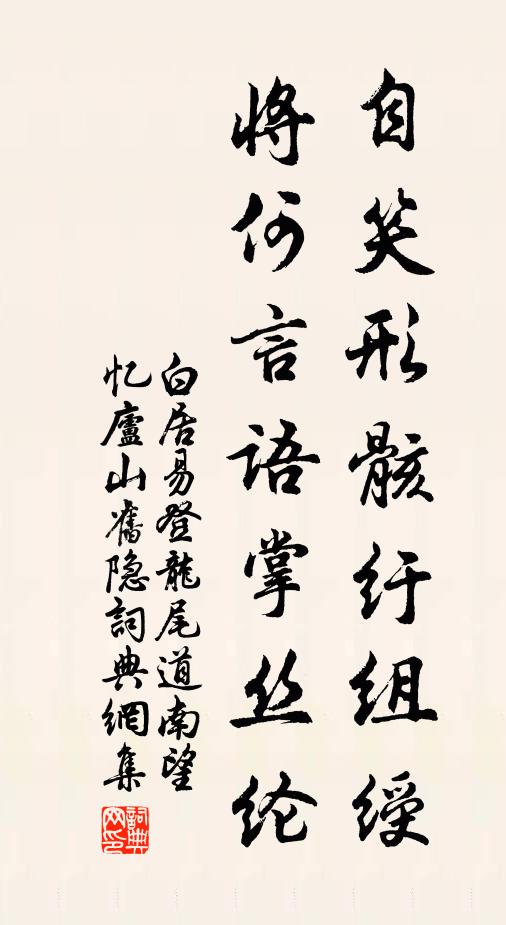 自笑形骸纡组绶
将何言语掌丝纶
白居易登龍尾道南望
忆廬山舊隐詞典網集
詞典网印